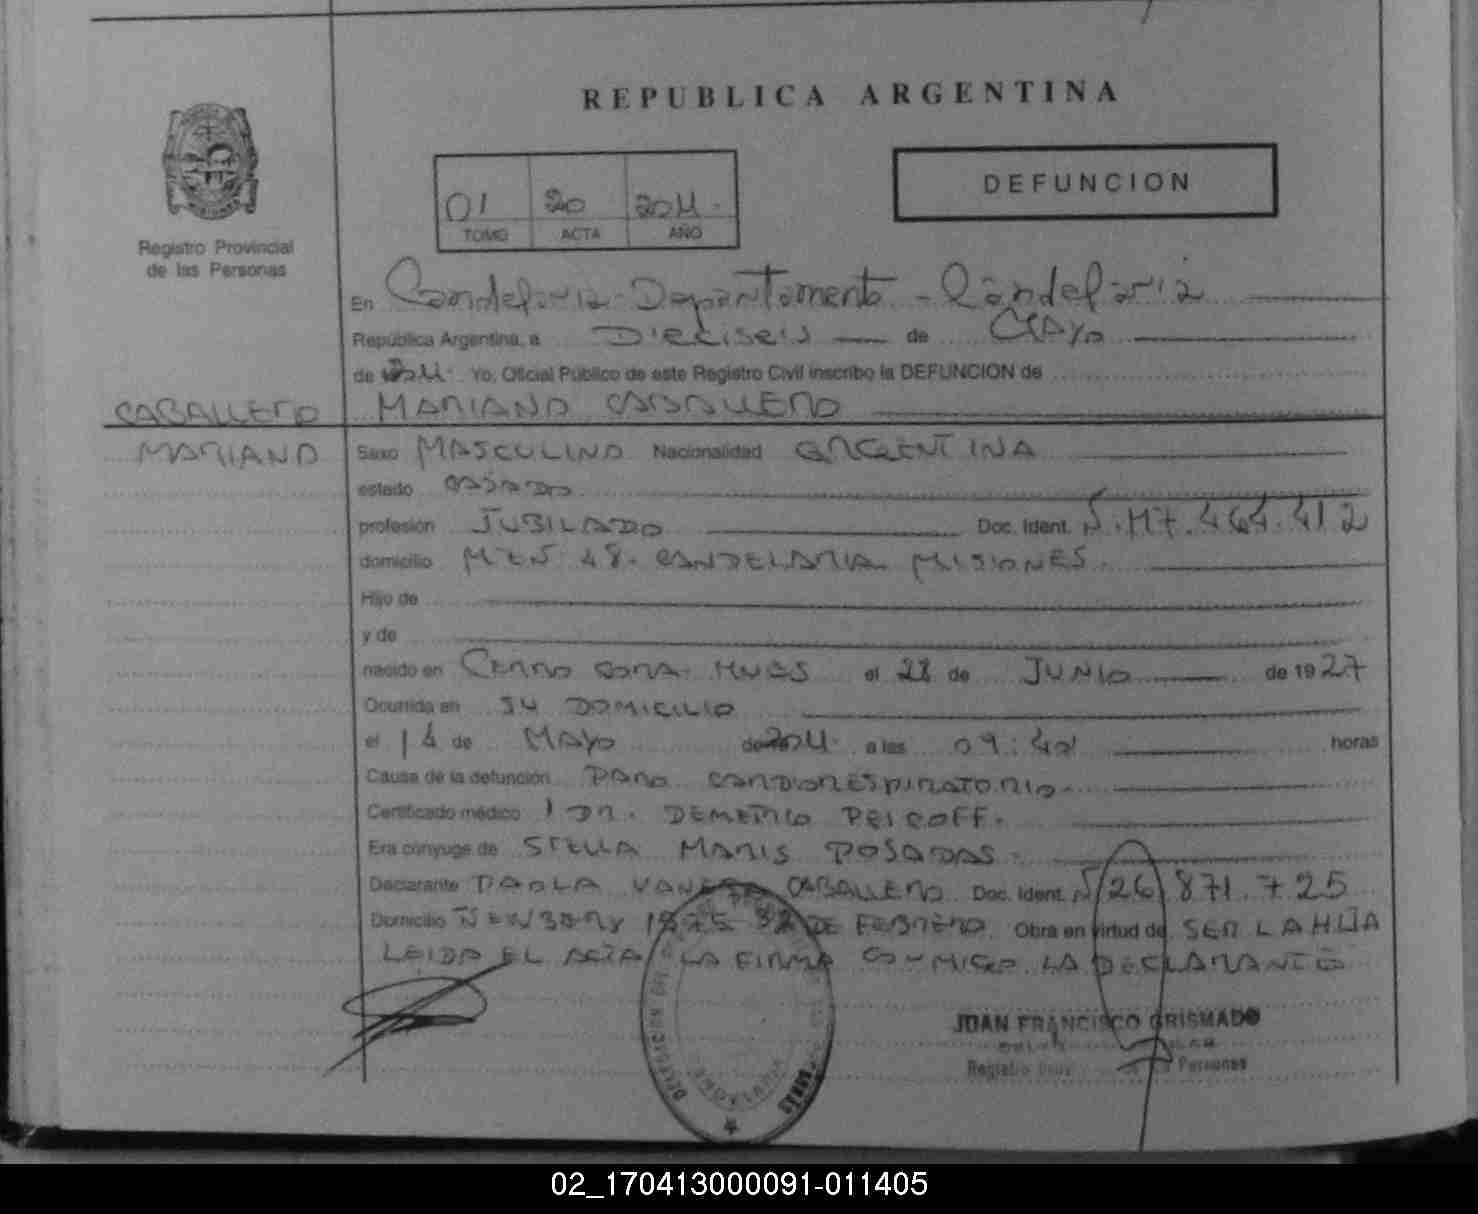 REPUBLICA ARGENTINA
DEFUNCION
01 20 2011.
TOMO ACTA AÑO
Registro Provincial
de las Personas
En Candelaria - Departamento - Candelaria
República Argentina, a Dieciseis de Mayo
de 2011. Yo, Oficial Público de este Registro Civil inscribo la DEFUNCION de
CABALLERO MARIANO CABALLERO
MARIANO Sexo MASCULINO Nacionalidad ARGENTINA
estado CASADO
profesión JUBILADO Doc. Ident. N. M7.464.412
domicilio 48. CANDELARIA MISIONES.
Hijo de
y de
nacido en CERRO CORA. MNES el 28 de JUNIO de 1927
Ocurrida en SU DOMICILIO
el 14 de MAYO de 2011. a las 09:40 horas
Causa de la defunción PARO CARDIORESPIRATORIO
Certificado médico DR. DEMETRIO
Era cónyuge de STELLA MARIS POSADAS.
Declarante PAOLA VANESA CABALLERO Doc. Ident. N 26.871.725
Domicilio NEWBERY DE FEBRERO. Obra en virtud de SER LA HIJA
LEIDA EL ACTA LA FIRMA CONMIGO LA DECLARANTE
JUAN FRANCISCO GRISMADO
Registro Personas
02_170413000091-011405